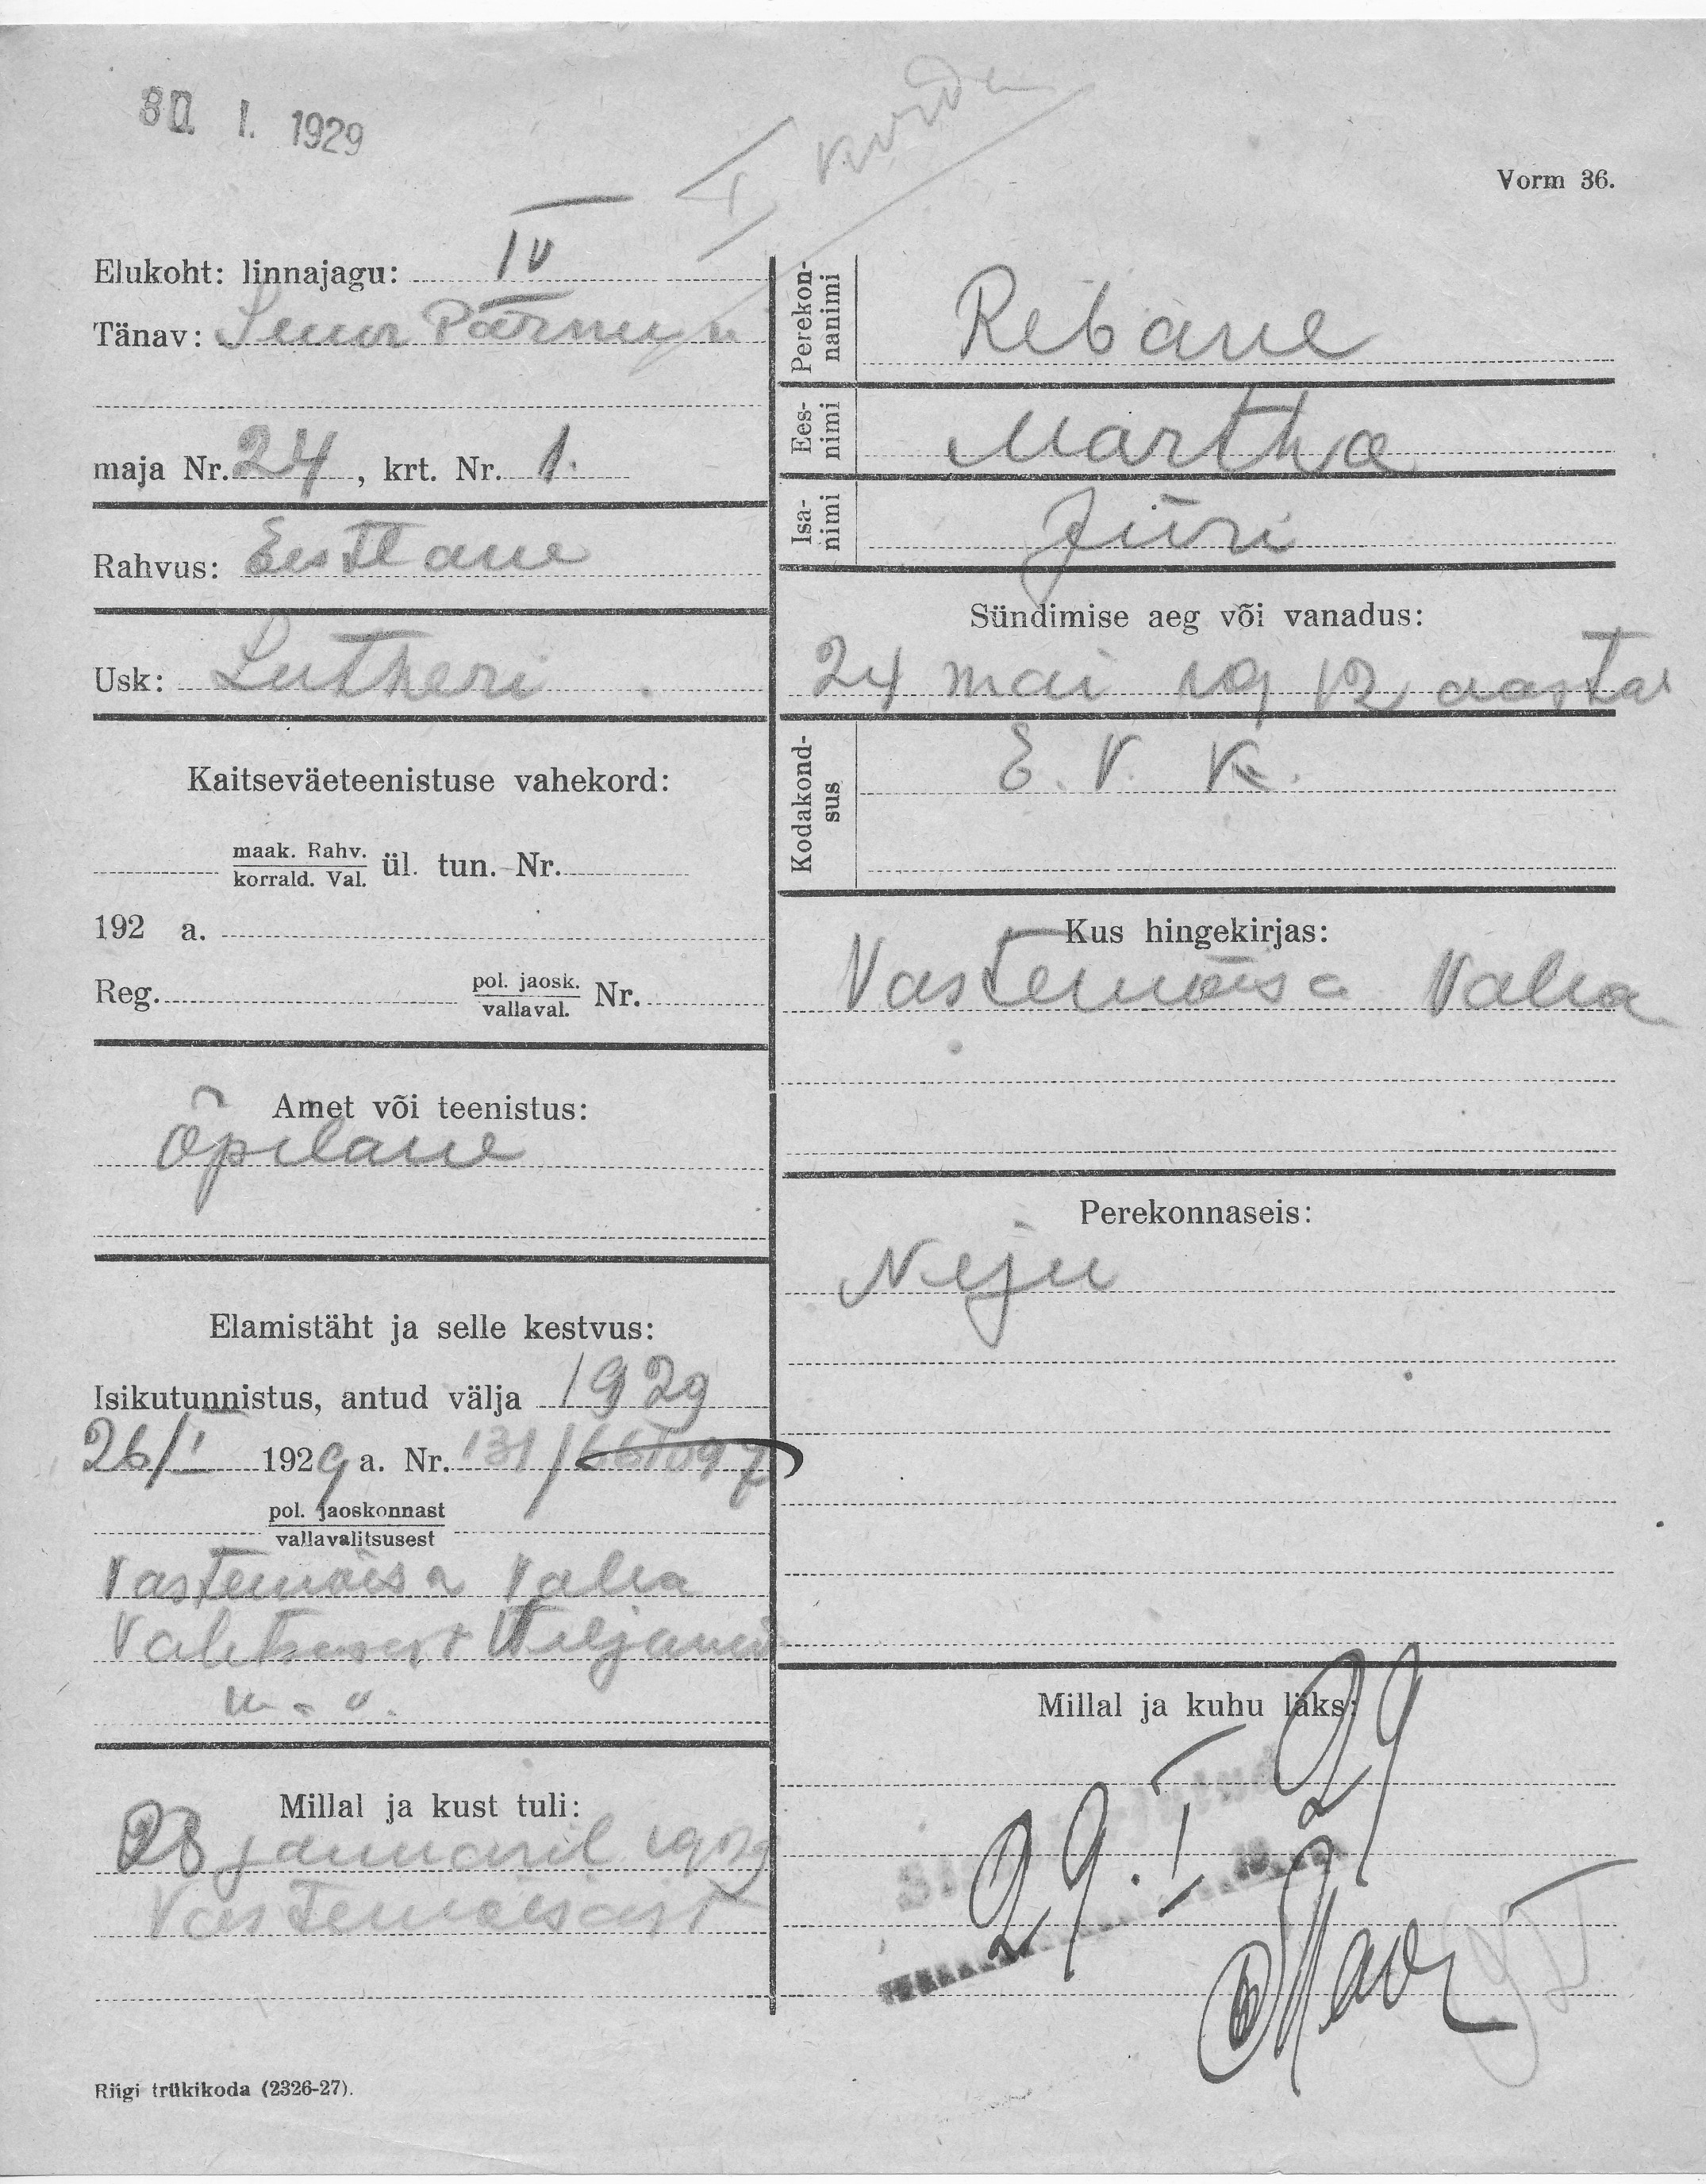 30. I. 1929
I korda
Vorm 36.
Elukoht: linnajagu: IV
Tänav: Suur Pärnu
maja Nr. 24, krt. Nr. 1.
Rahvus: Eestlane
Usk: Lutheri
Kaitseväeteenistuse vahekord:
maak. Rahv.
korrald. Val. ül. tun. Nr.
192 a.
Reg. pol. jaosk.
vallaval. Nr.
Amet või teenistus:
Õpilane
Elamistäht ja selle kestvus:
Isikutunnistus, antud välja 1929
26/I 1929 a. Nr. 131/
pol. jaoskonnast
vallavalitsusest
Vastemõisa Valla
Valitsusest Viljandi
m-l.
Millal ja kust tuli:
28 januaril 1929
Vastemõisast
Perekonnanimi
Rebane
Eesnimi
Martha
Isanimi
Jüri
Sündimise aeg või vanadus:
24 mai 1912 aastal
Kodakondsus
E. V. K.
Kus hingekirjas:
Vastemõisa Valla
Perekonnaseis:
Neju
Millal ja kuhu läks:
29. I 29
Riigi trükikoda (2326-27).